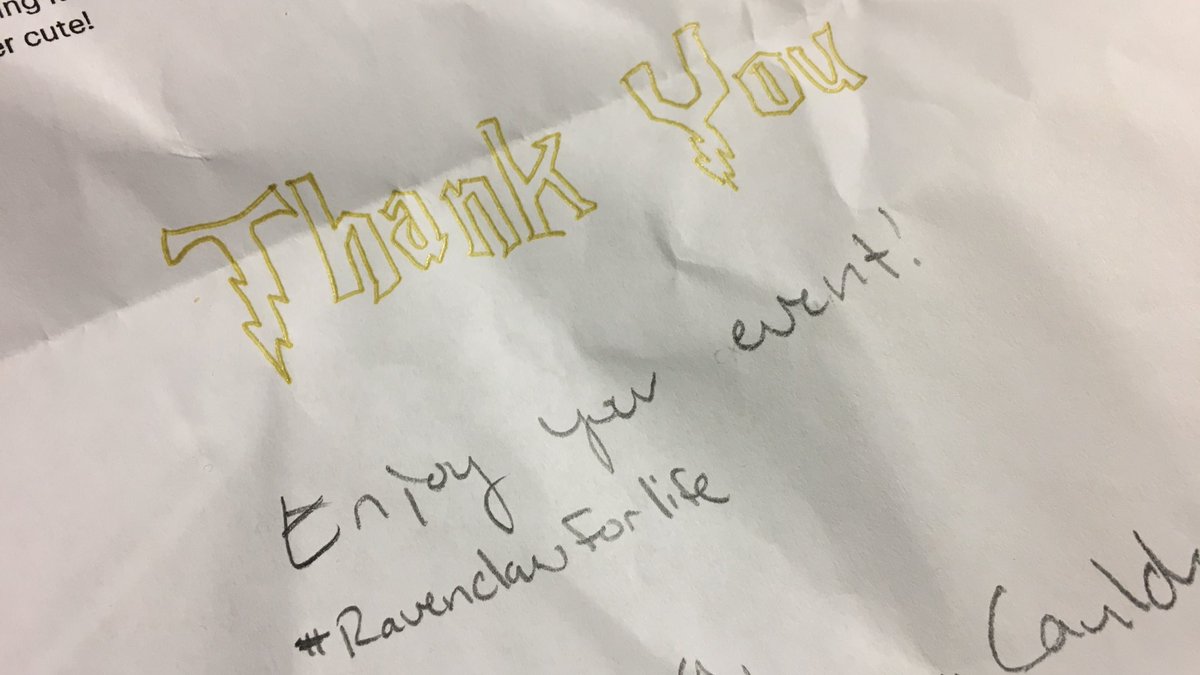 er cute!
Thank You
Enjoy your event!
#Ravenclaw for life